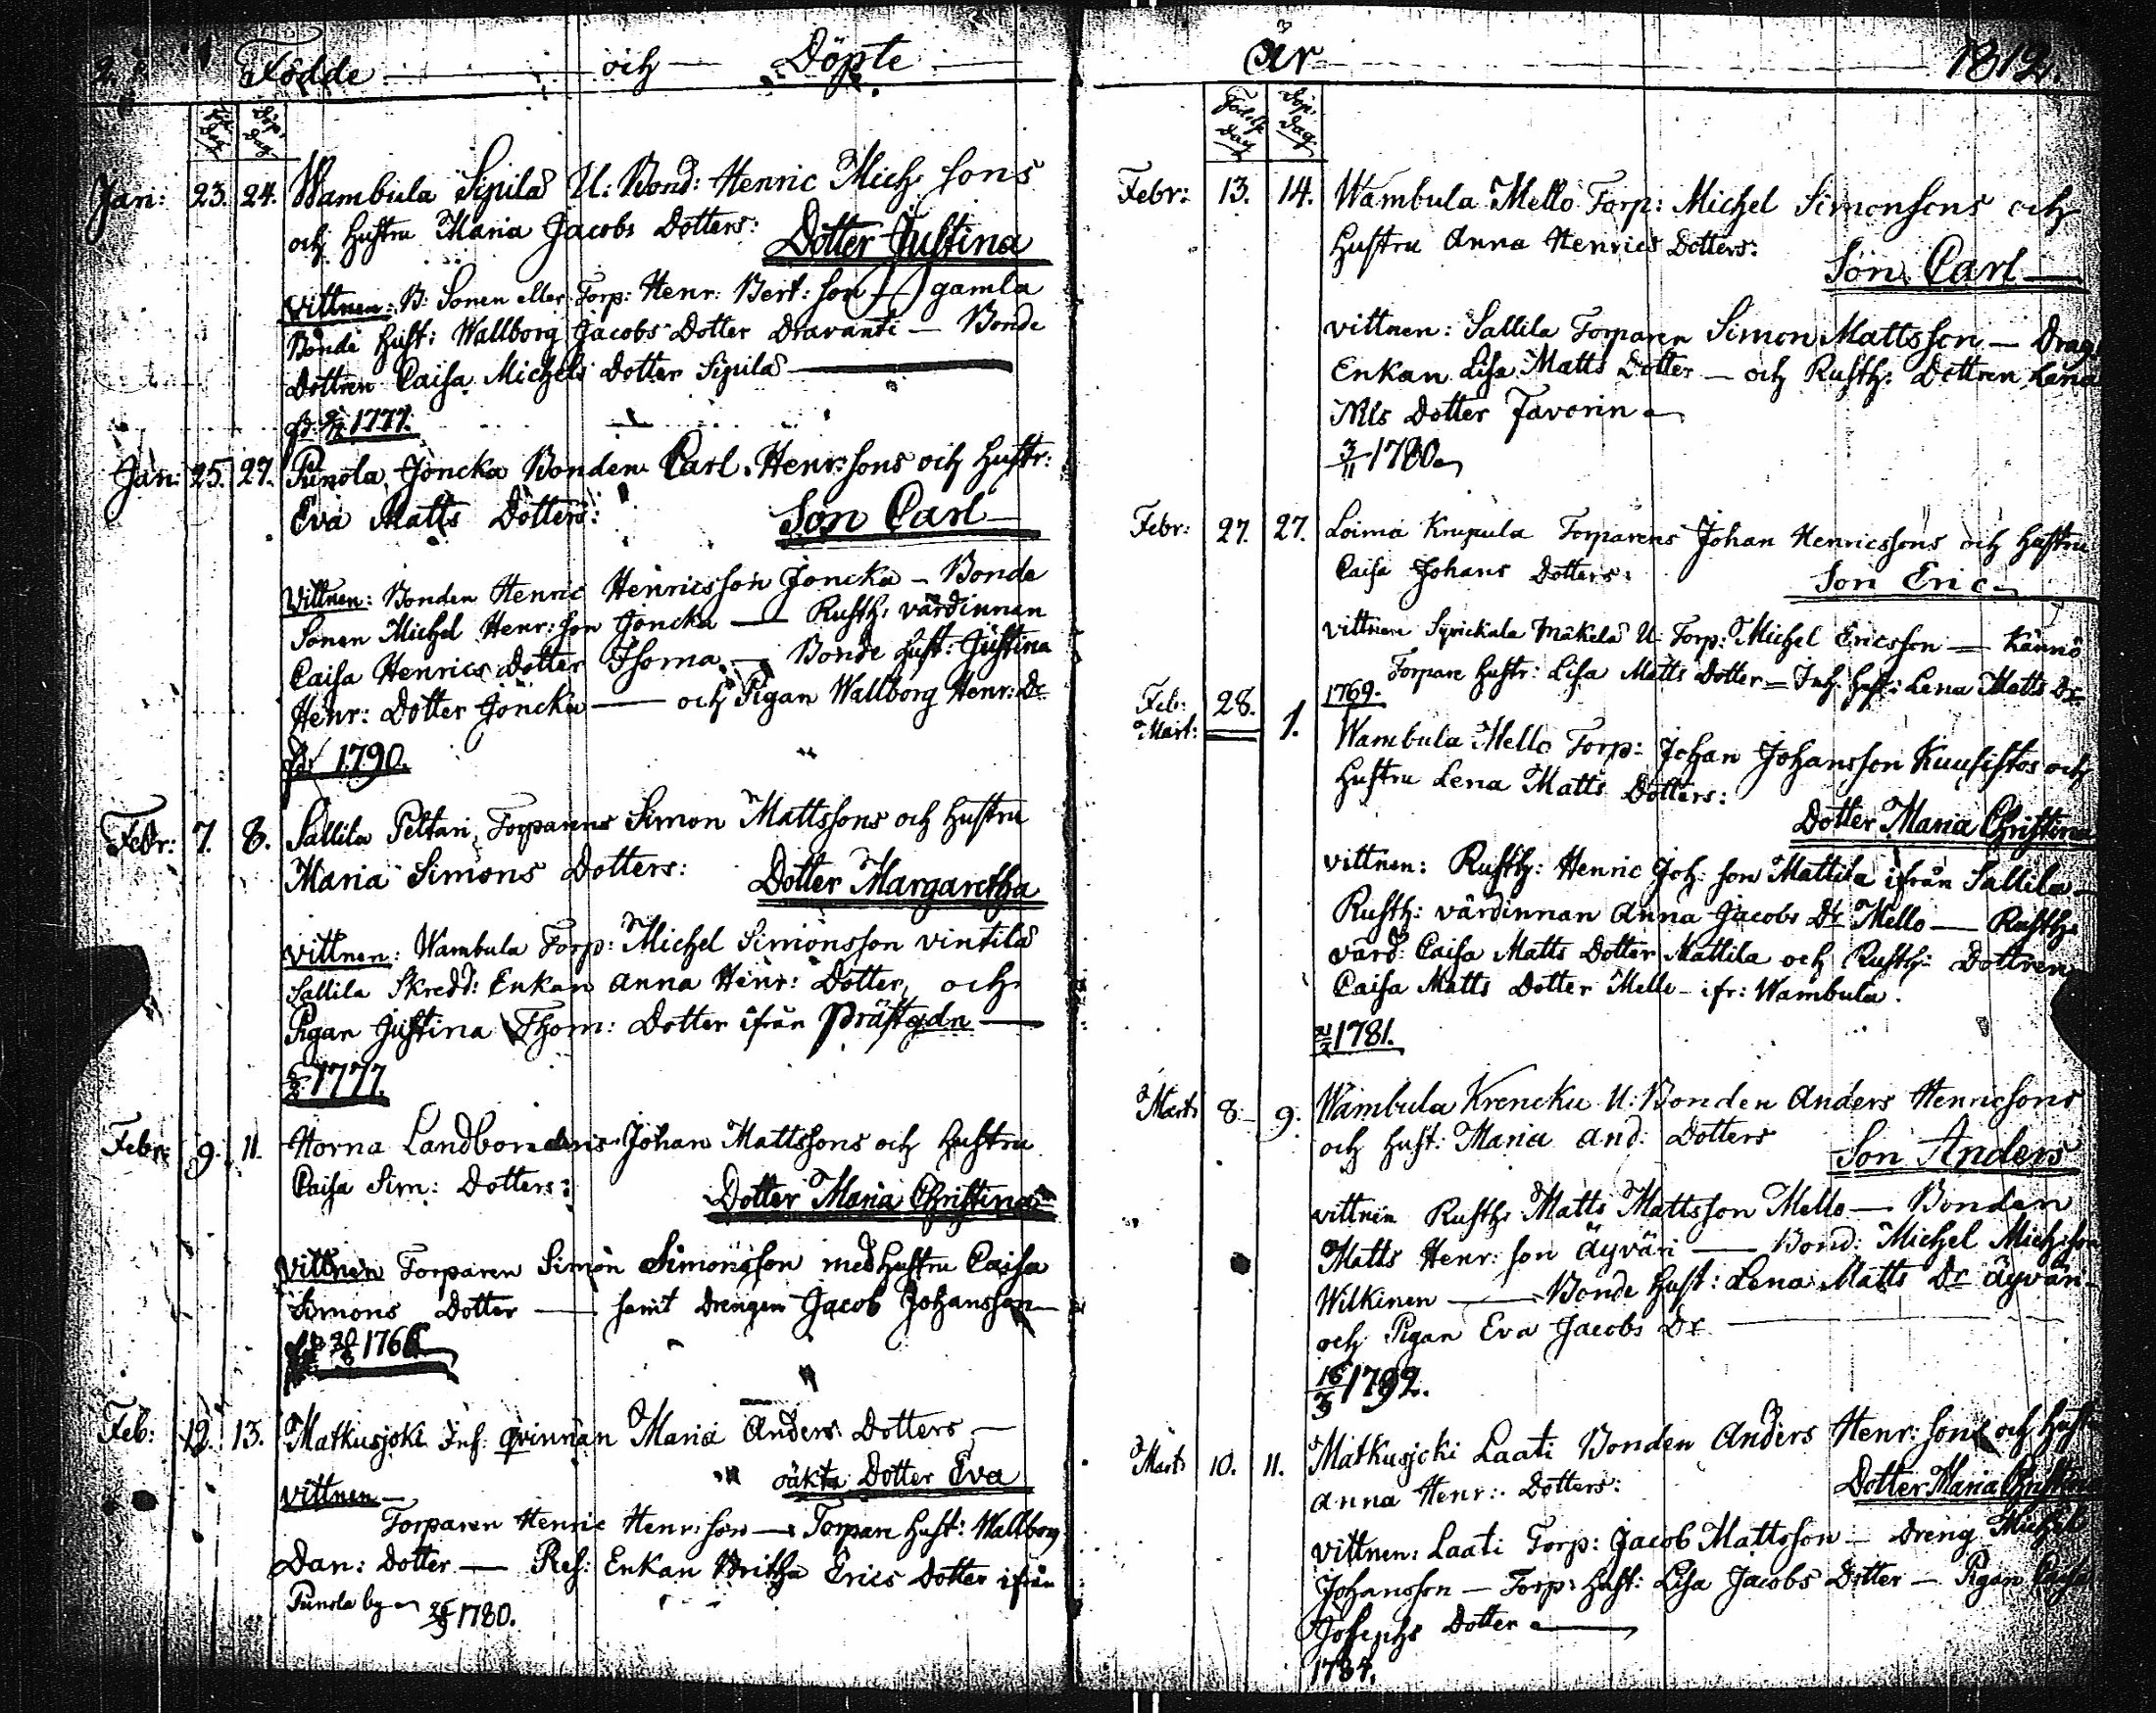 2.
Födde och Döpte
Föd. Dag Döp. Dag
Jan: 23. 24. Wambula Sipilä U: Bond: Henric Mich: sons
och hustru Maria Jacobs Dotters: Dotter Justina
Vittnen: B: Sonen eller Torp: Henr: Bert: son gamla
Bonde hust: Wallborg Jacobs Dotter Dravanti — Bonde
Dottren Caisa Michels Dotter Sipilä
1777.
Jan: 25. 27. Punola Joncka Bonden Carl Henr: sons och hustr:
Eva Matts Dotters: Son Carl
Vittnen: Bonden Henric Henricsson Joncka — Bonde
Sonen Michel Henr: son Joncka — Rusth: värdinnan
Caisa Henrics Dotter Thoma — Bonde hust: Justina
Henr: Dotter Joncka — och Pigan Wallborg Henr: Dr
1790.
Febr: 7. 8. Sallila Peltari Torparens Simon Mattssons och hustru
Maria Simons Dotters: Dotter Margaretha
Vittnen: Wambula Torp: Michel Simonsson vintilä
Sallila Skredd: Enkan Anna Henr: Dotter, och
Pigan Justina Thom: Dotter ifrån prästgdn
1777.
Febr: 9. 11. Horna Landbondens Johan Mattssons och hustru
Caisa Sim: Dotters: Dotter Maria Christina
Vittnen Torparen Simon Simonsson med hustru Caisa
Simons Dotter — samt Drengen Jacob Johansson
1766
Feb: 12. 13. Matkusjoki Inh: qvinnan Maria Anders Dotters —
oäkta Dotter Eva
Vittnen —
Torparen Henric Henr: son — Torpare hust: Wallborg
Dan: Dotter — Enkan Britha Erics Dotter ifrån
Punola by 1780.
år 1812.
Födelse Dag Döp. Dag
Febr: 13. 14. Wambula Mello Torp: Michel Simonsons och
hustru Anna Henrics Dotters:
Son Carl
Vittnen: Sallila Torparen Simon Mattsson — Drag:
Enkan Lisa Matts Dotter — och Rusth: Dottren Lena
Nils Dotter Favorin
3/11 1780
Febr: 27. 27. Loima Krupula Torparens Johan Henricssons och hustru
Caisa Johans Dotters: Son Eric
Vittnen Syrickala Mäkelä U: Torp: Michel Ericsson — Kännö
Torpare hustr: Lisa Matts Dotter — Inh: hust: Lena Matts Dr
1769.
Feb: 28. Mart: 1. Wambula Mello Torp: Johan Johansson Kuusistos och
hustru Lena Matts Dotters:
Dotter Maria Christina
Vittnen: Rusth: Henric Joh: son Mattila ifrån Sallila —
Rusth: värdinnan Anna Jacobs Dr Mello — Rusth:
värd: Caisa Matts Dotter Mattila och Rusth: Dottren
Caisa Matts Dotter Mello — ifr: Wambula.
1781.
Mart: 8. 9. Wambula Krencku U: Bonden Anders Henricsons
och hust: Maria And: Dotters Son Anders
Vittnen Rusth: Matts Mattsson Mello — Bonden
Matts Henr: son Äyväri — Bond: Michel Mich: son
Wilkinen — Bonde hust: Lena Matts Dr Äyväri —
och Pigan Eva Jacobs Dr
16/3 1792.
Mart: 10. 11. Matkusjoki Laati Bonden Anders Henr: sons och hust
Anna Henr: Dotters: Dotter Maria Christina
Vittnen: Laati Torp: Jacob Mattsson — Dreng Michel
Johansson — Torp: hust: Lisa Jacobs Dotter — Pigan Caisa
Josephs Dotter
1784.